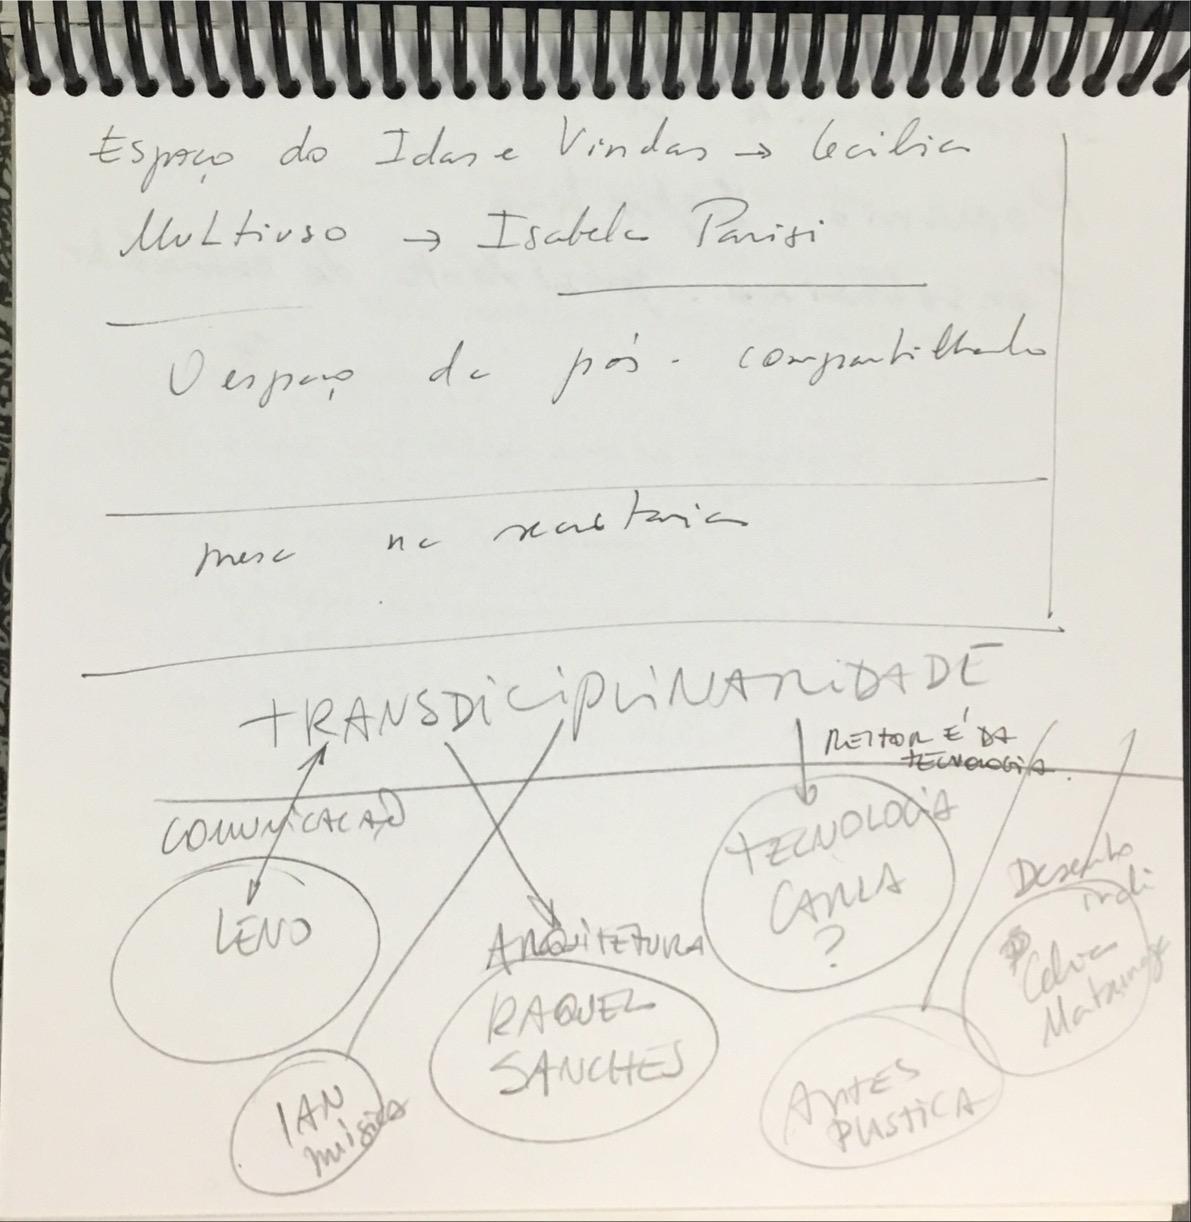 Espaço do Idas e Vindas → Cecilia
Multiuso → Isabela Parisi
O espaço da pós - compartilhado
mesa na secretaria
TRANSDICIPLINARIDADE
REITOR É DA
TECNOLOGIA
COMUNICAÇÃO
LENO
ARQUITETURA
RAQUEL
SANCHES
TECNOLOGIA
CARLA
?
Desenho
indi
Matsunaga
IAN
música
ARTES
PLÁSTICA